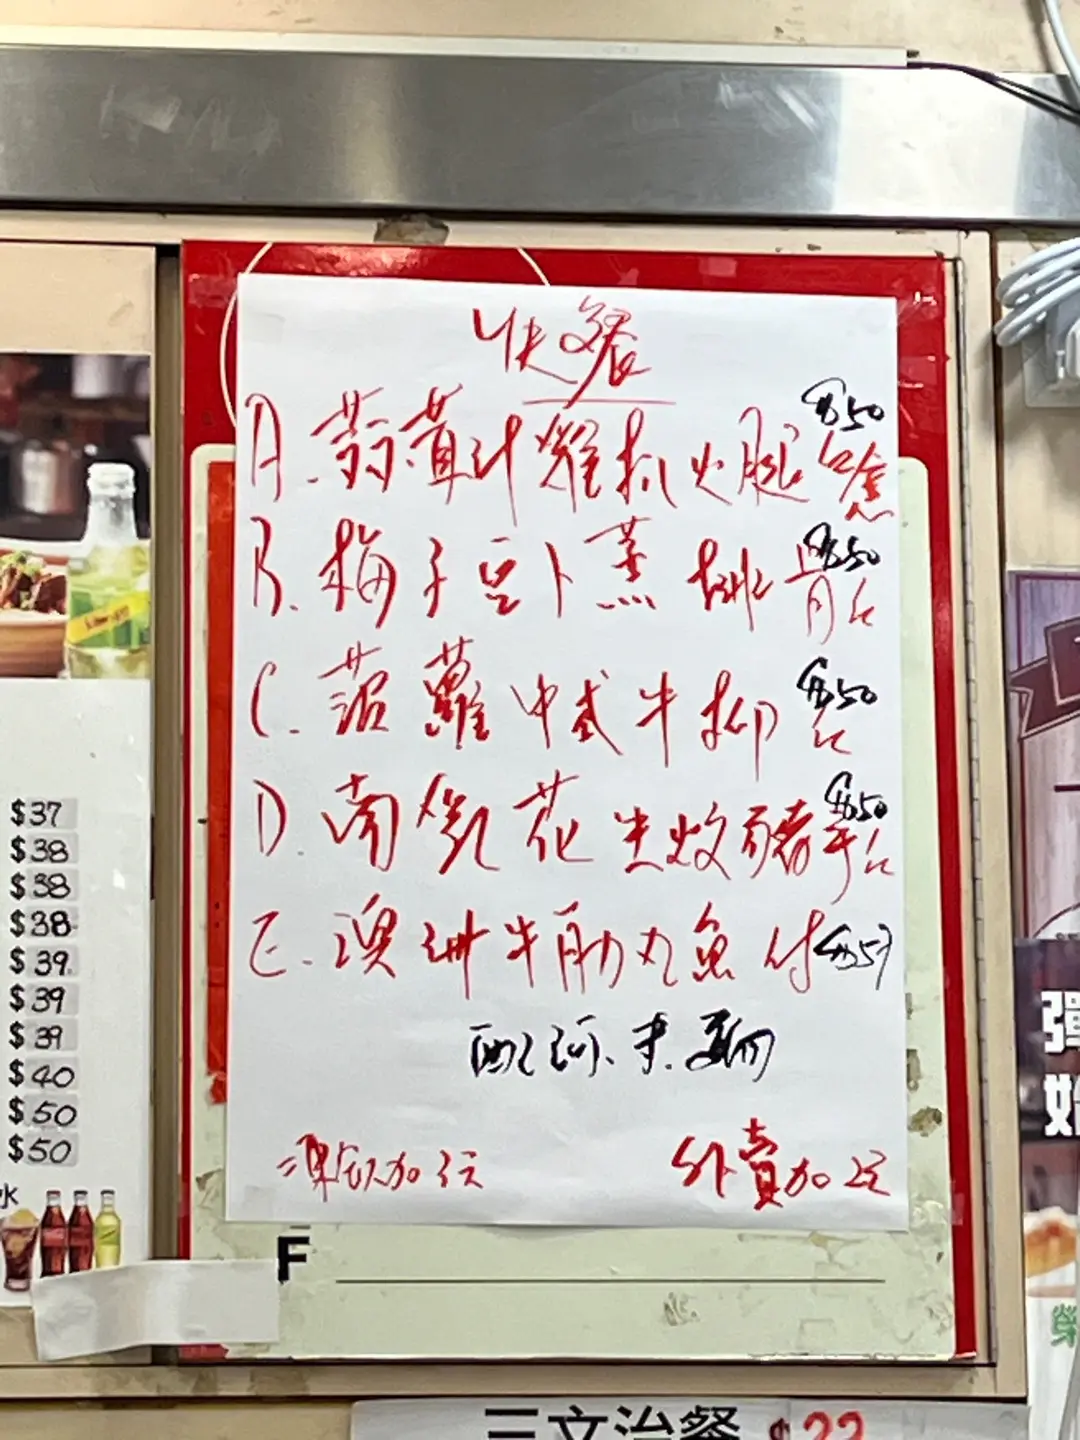 快餐
A. 蒜茸汁雞扒火腿 $50
B. 梅子豆卜蒸排骨 $50
C. 菠蘿中式牛柳 $50
D 南乳花生炆豬手 $50
E. 澳洲牛肋丸魚 $57
凍飲加3元
外賣加2元
$37
$38
$38
$38
$39
$39
$39
$40
$50
$50
水
F
三文治餐 $22
彈